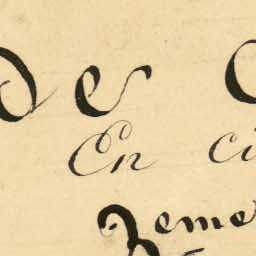 des
En ci
Zeme